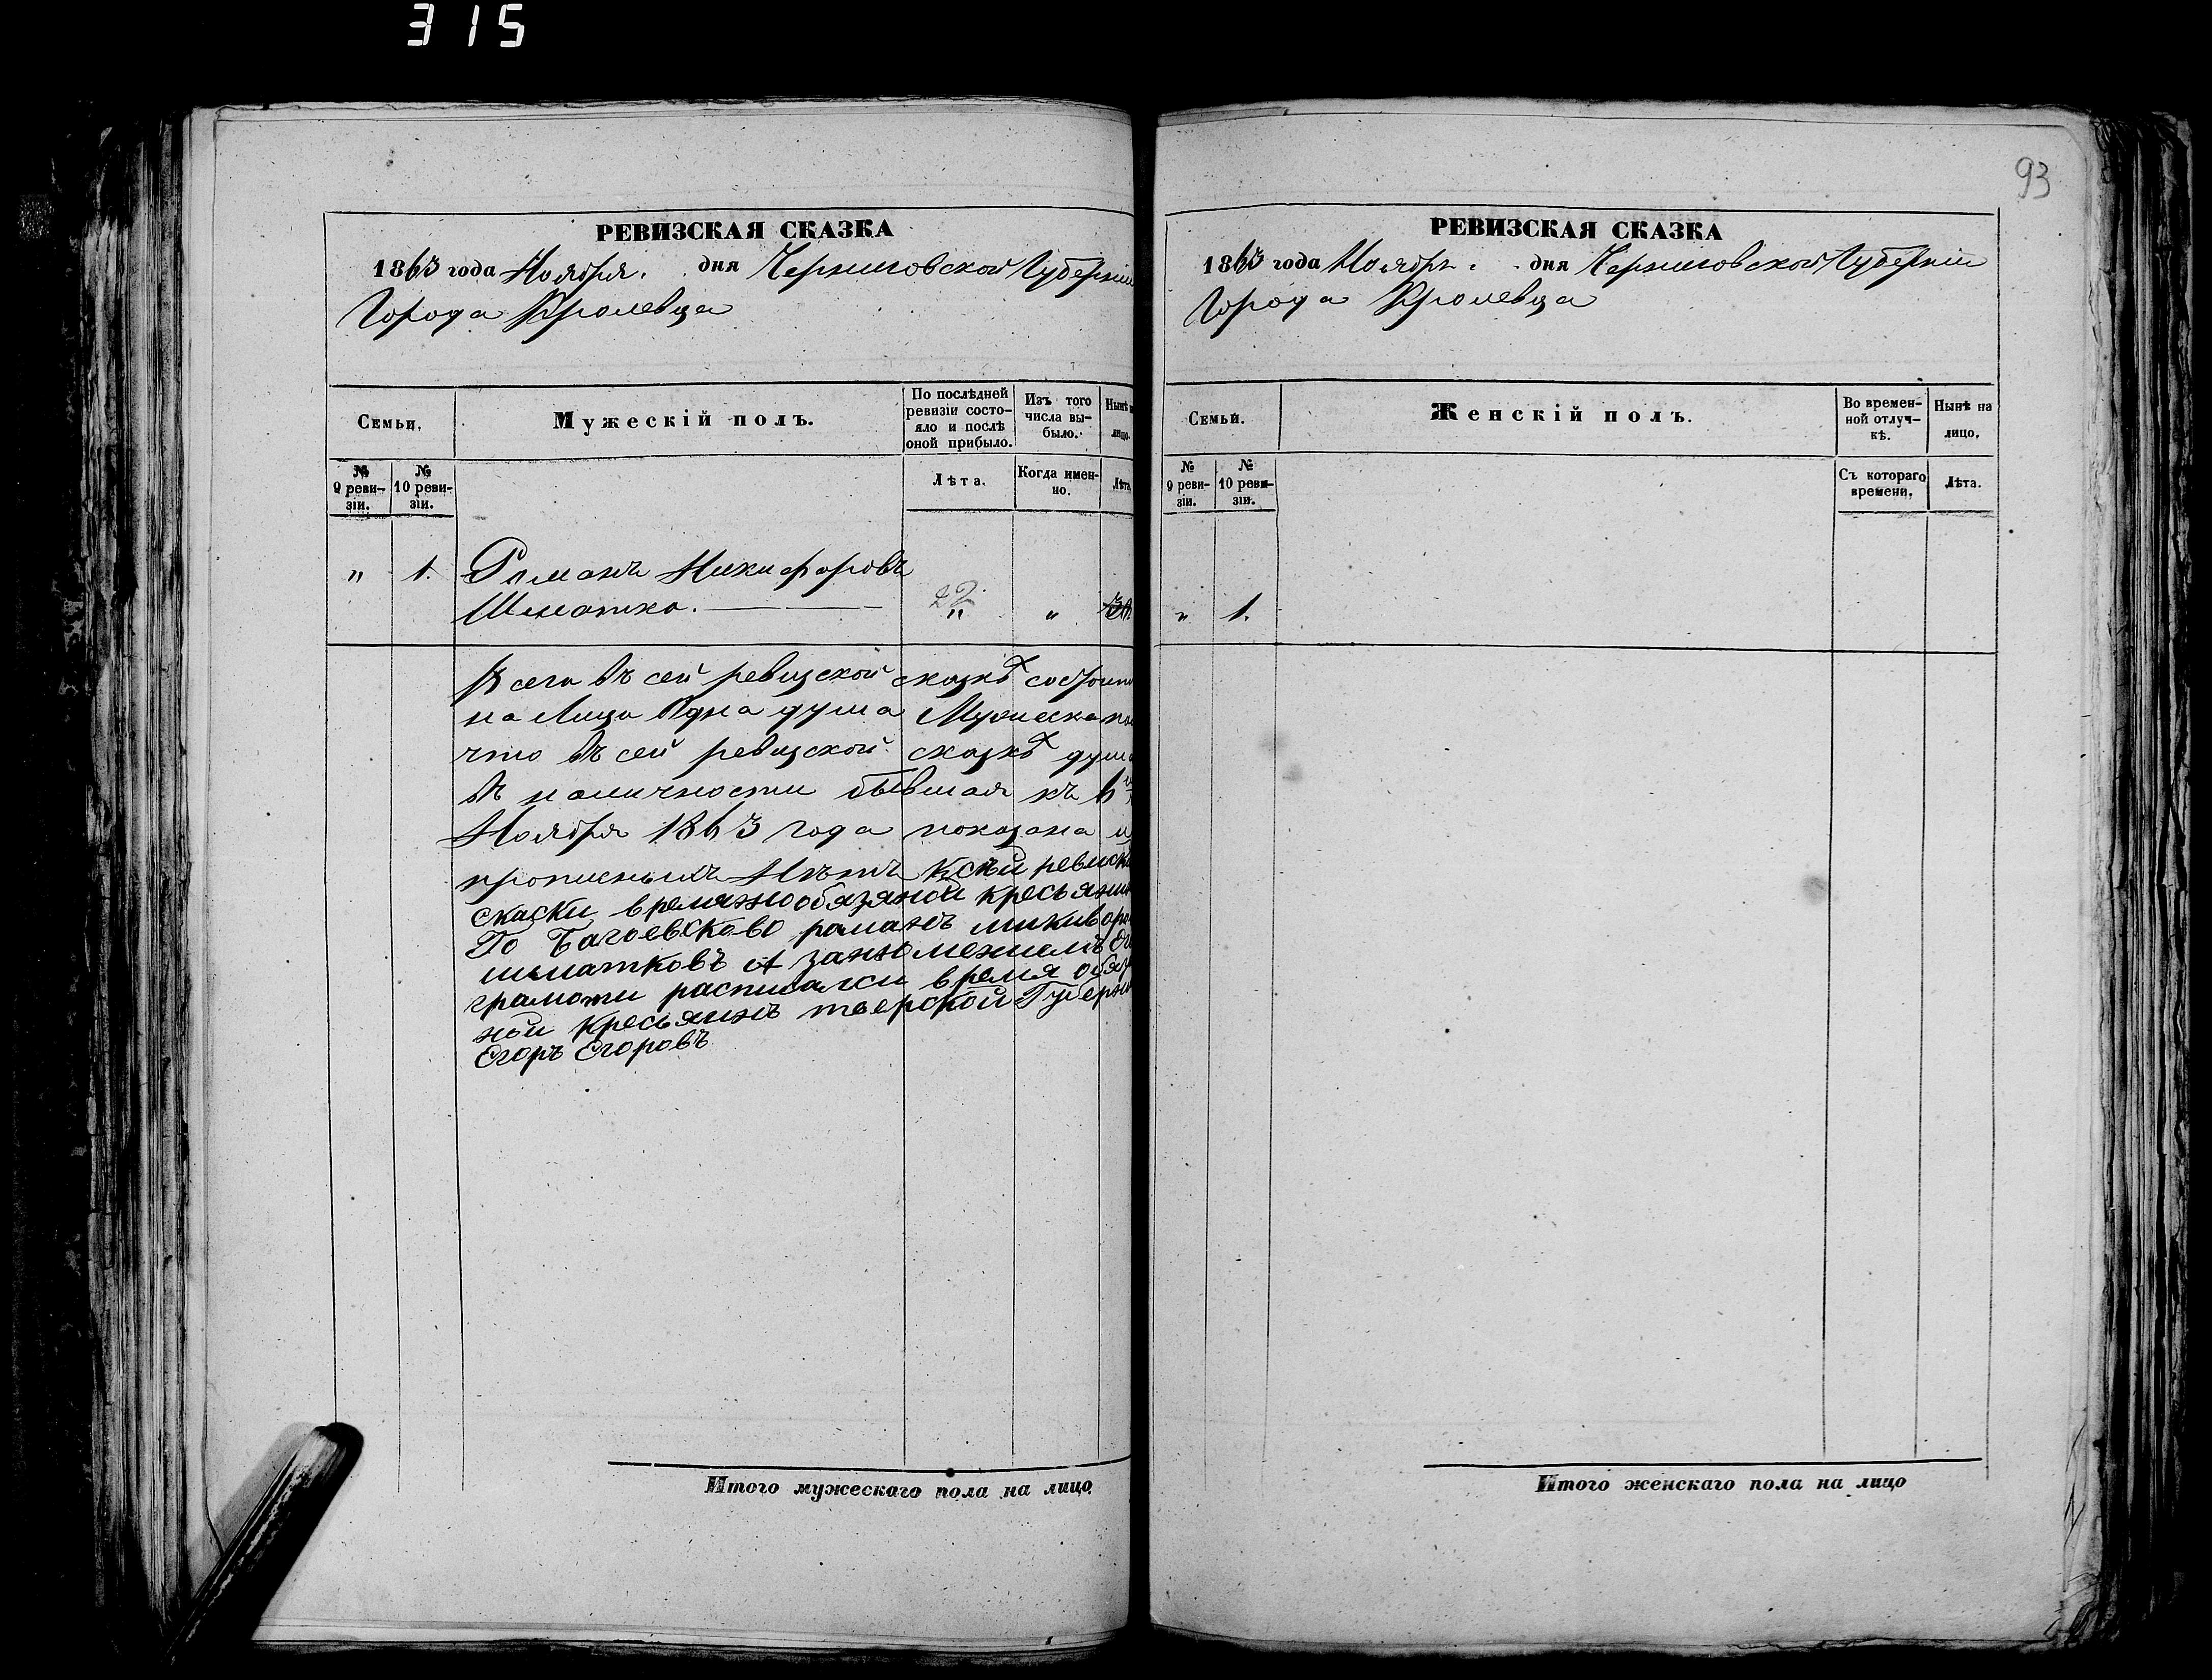 315
РЕВИЗСКАЯ СКАЗКА
1863 года Ноября. дня Черниговской Губерніи
Города Кролевца
Семьи.
Мужескій полъ.
По послѣдней ревизіи состояло и послѣ оной прибыло.
Изъ того числа выбыло.
Нынѣ на лицо.
№ 9 ревизіи.
№ 10 ревизіи.
Лѣта.
Когда именно.
Лѣта.
" 1. Романъ Никифоровъ
Шматко. 22 " "
Всего въ сей ревизской сказкѣ состоитъ
на Лицо Одна душа Мужеска по
что въ сей ревизской сказкѣ душа
въ наличности бывшая къ
Ноября 1863 года показана и
прописныхъ Нѣтъ Ксѣй ревиски
скаски времянообязяной кресьянин
романъ микивора
шматковъ
грамоти расписалси время обяз
ной кресьянинъ тверской Губерни
Егоръ Егоровъ
Итого мужескаго пола на лицо
93
РЕВИЗСКАЯ СКАЗКА
1863 года Ноября. дня Черниговской Губерніи
Города Кролевца
Семьи.
Женскій полъ.
Во временной отлучкѣ.
Нынѣ на лицо.
№ 9 ревизіи.
№ 10 ревизіи.
Съ котораго времени.
Лѣта.
" 1.
Итого женскаго пола на лицо